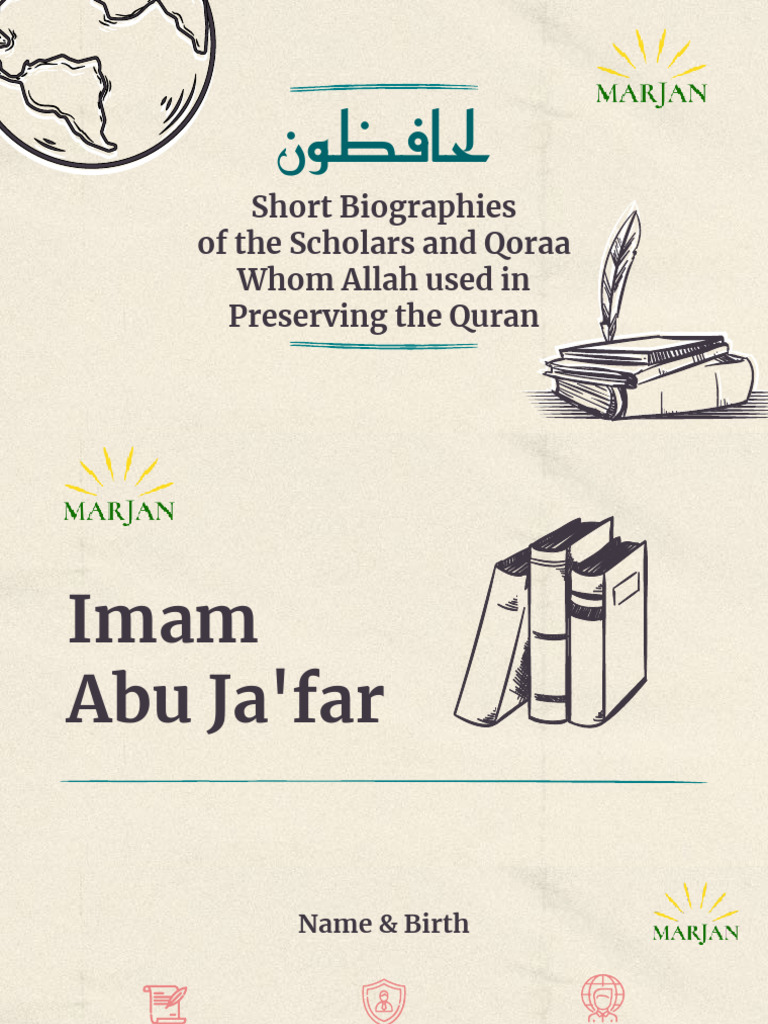 MARJAN
لحافظون
Short Biographies
of the Scholars and Qoraa
Whom Allah used in
Preserving the Quran
MARJAN
Imam
Abu Ja'far
MARJAN
Name & Birth